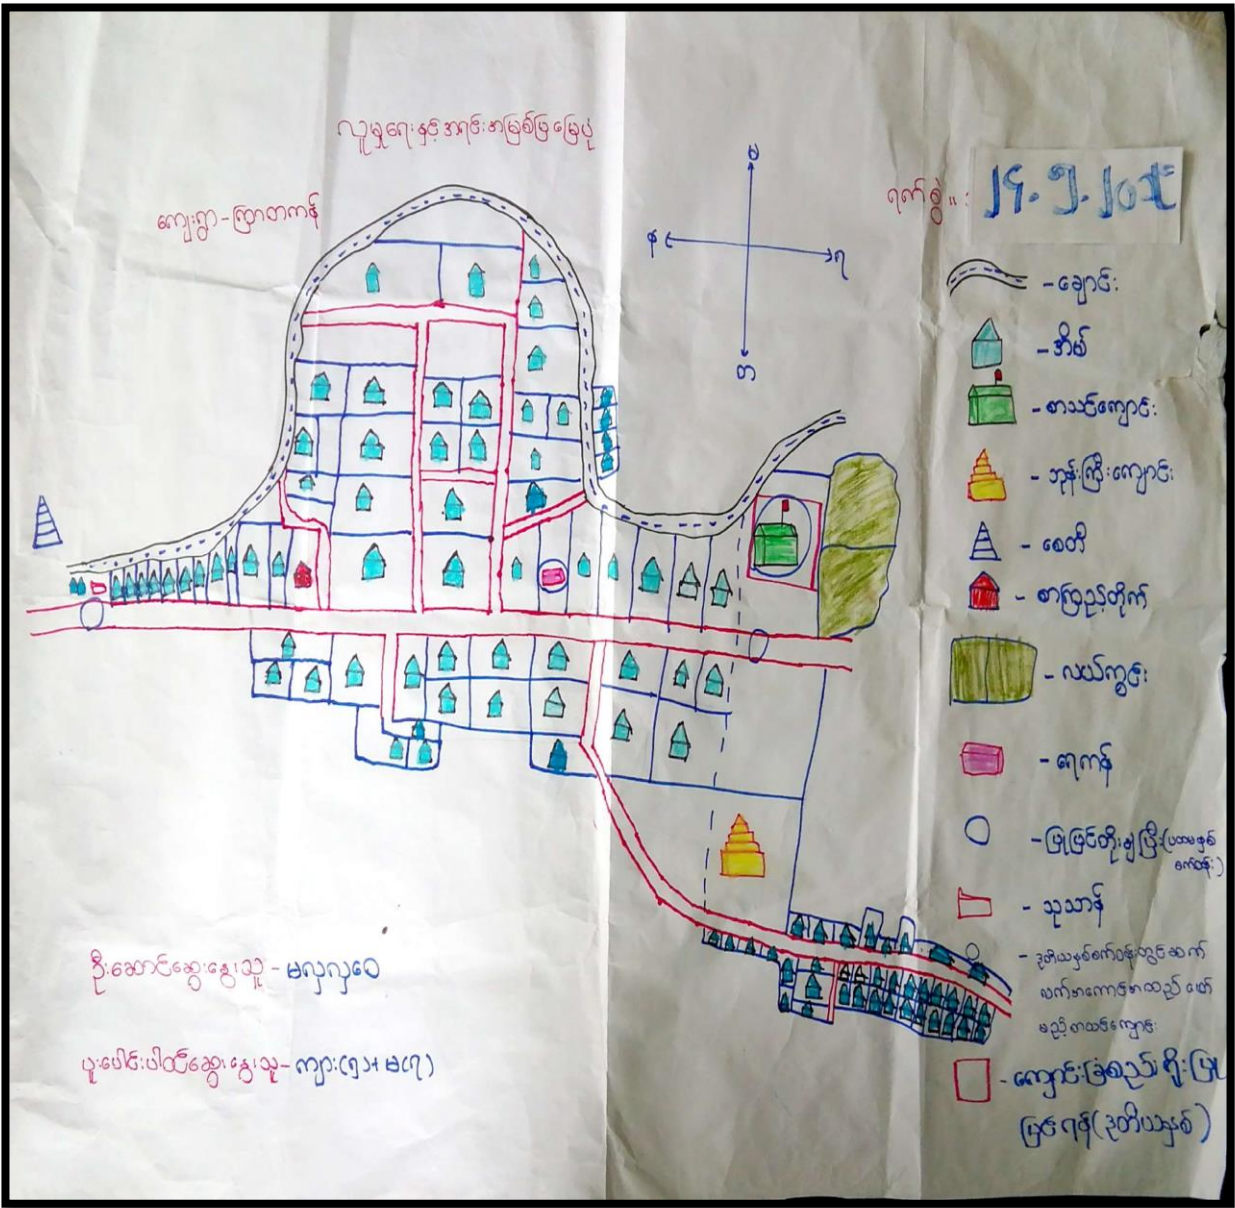 လူမှုရေးနှင့်အရင်းအမြစ်ပြမြေပုံ
ကျေးရွာ-ကြာတကန်
မ
န
ရ
တ
ရက်စွဲ။ :
၂၄.၅.၂၀၁၉
-ချောင်း
-အိမ်
-စာသင်ကျောင်း
-ဘုန်းကြီးကျောင်း
-စေတီ
-စာကြည့်တိုက်
-လယ်ကွင်း
-ရေကန်
-ပြုပြင်တိုးချဲ့ပြီး(ပထမနှစ်
စက်ဝန်း)
-သုသာန်
-ဒုတိယနှစ်စက်ဝန်းတွင်ဆက်
လက်အကောင်အထည်ဖော်
မည့်စာသင်ကျောင်း
-ကျောင်းခြံစည်းရိုးပြု
ပြင်ရန်(ဒုတိယနှစ်)
ဦးဆောင်ဆွေးနွေးသူ-မလှလှဝေ
ပူးပေါင်းပါဝင်ဆွေးနွေးသူ-ကျား(၅)+မ(၇)